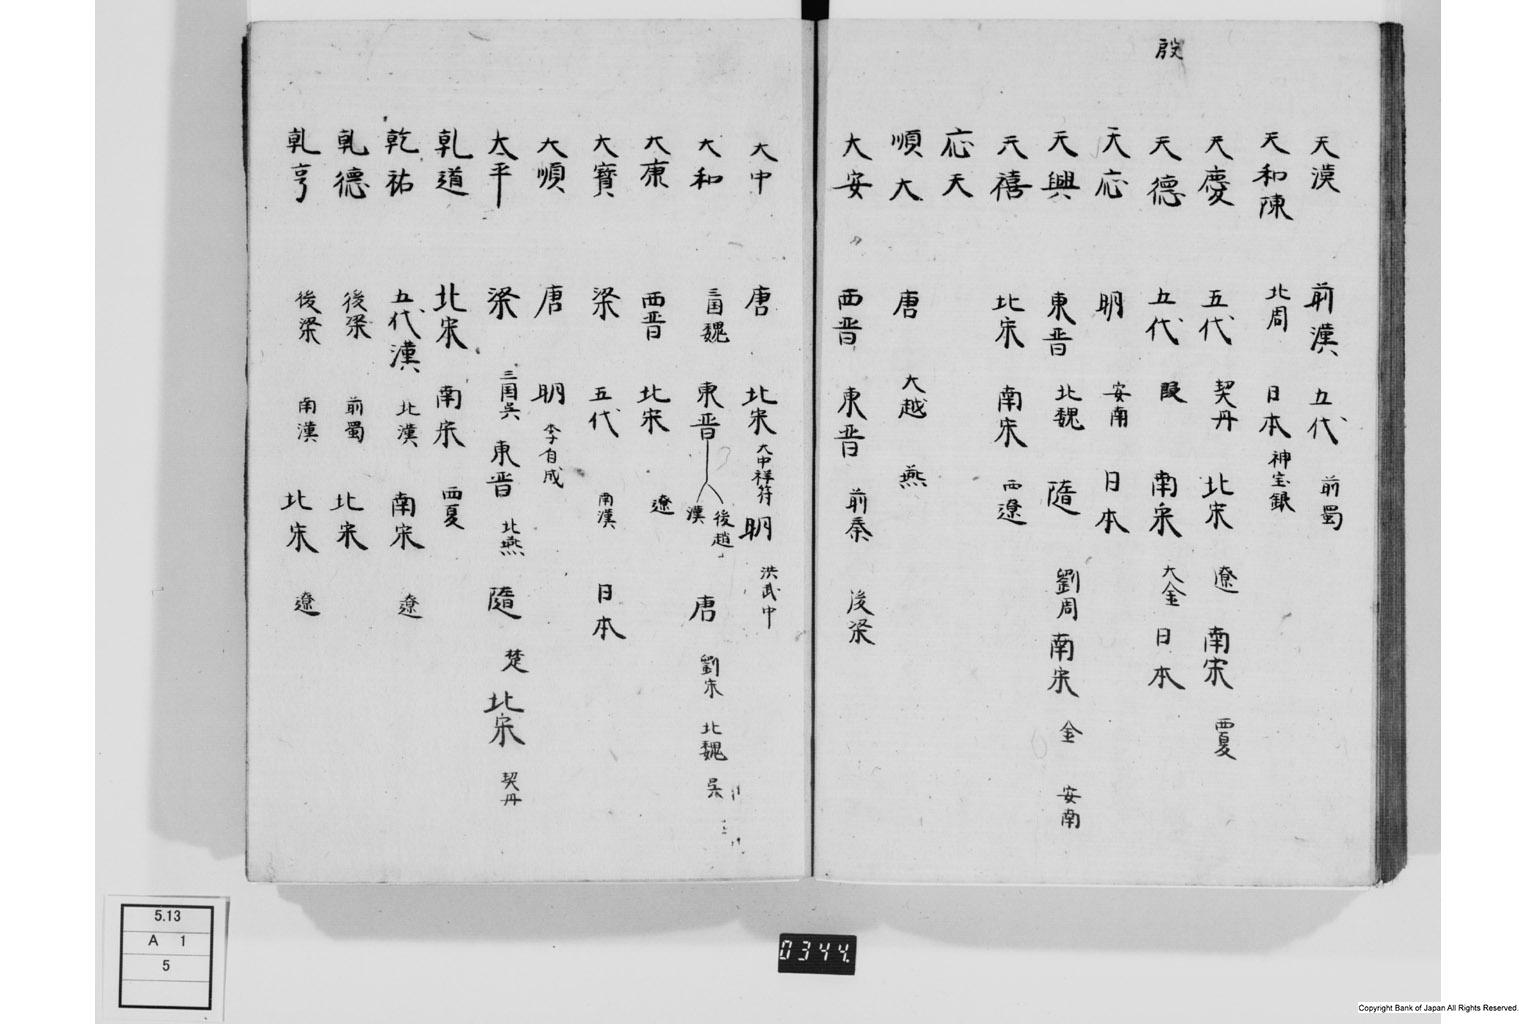 殷
天漢 前漢 五代 前蜀
天和陳 北周 日本 神宝銀
天慶 五代 契丹 北宋 遼 南宋 西夏
天德 五代 閩 南宋 大金 日本
天応 明 安南 日本
天興 東晋 北魏 隨 劉周 南宋 金 安南
天禧 北宋 南宋 西遼
応天
順大 唐 大越 燕
大安 〃 西晋 東晋 前秦 後梁
大中 唐 北宋 大中祥符 明 洪武中
大和 三国魏 東晋 後趙 漢 唐 劉宋 北魏 吴
大康 西晋 北宋 遼
大寳 梁 五代 南漢 日本
大順 唐 明 李自成
太平 梁 三国吴 東晋 北燕 隨 楚 北宋 契丹
乹道 北宋 南宋 西夏
乾祐 五代漢 北漢 南宋 遼
乹德 後梁 前蜀 北宋
乹亨 後梁 南漢 北宋 遼
5.13
A 1
5
0344.
Copyright Bank of Japan All Rights Reserved.